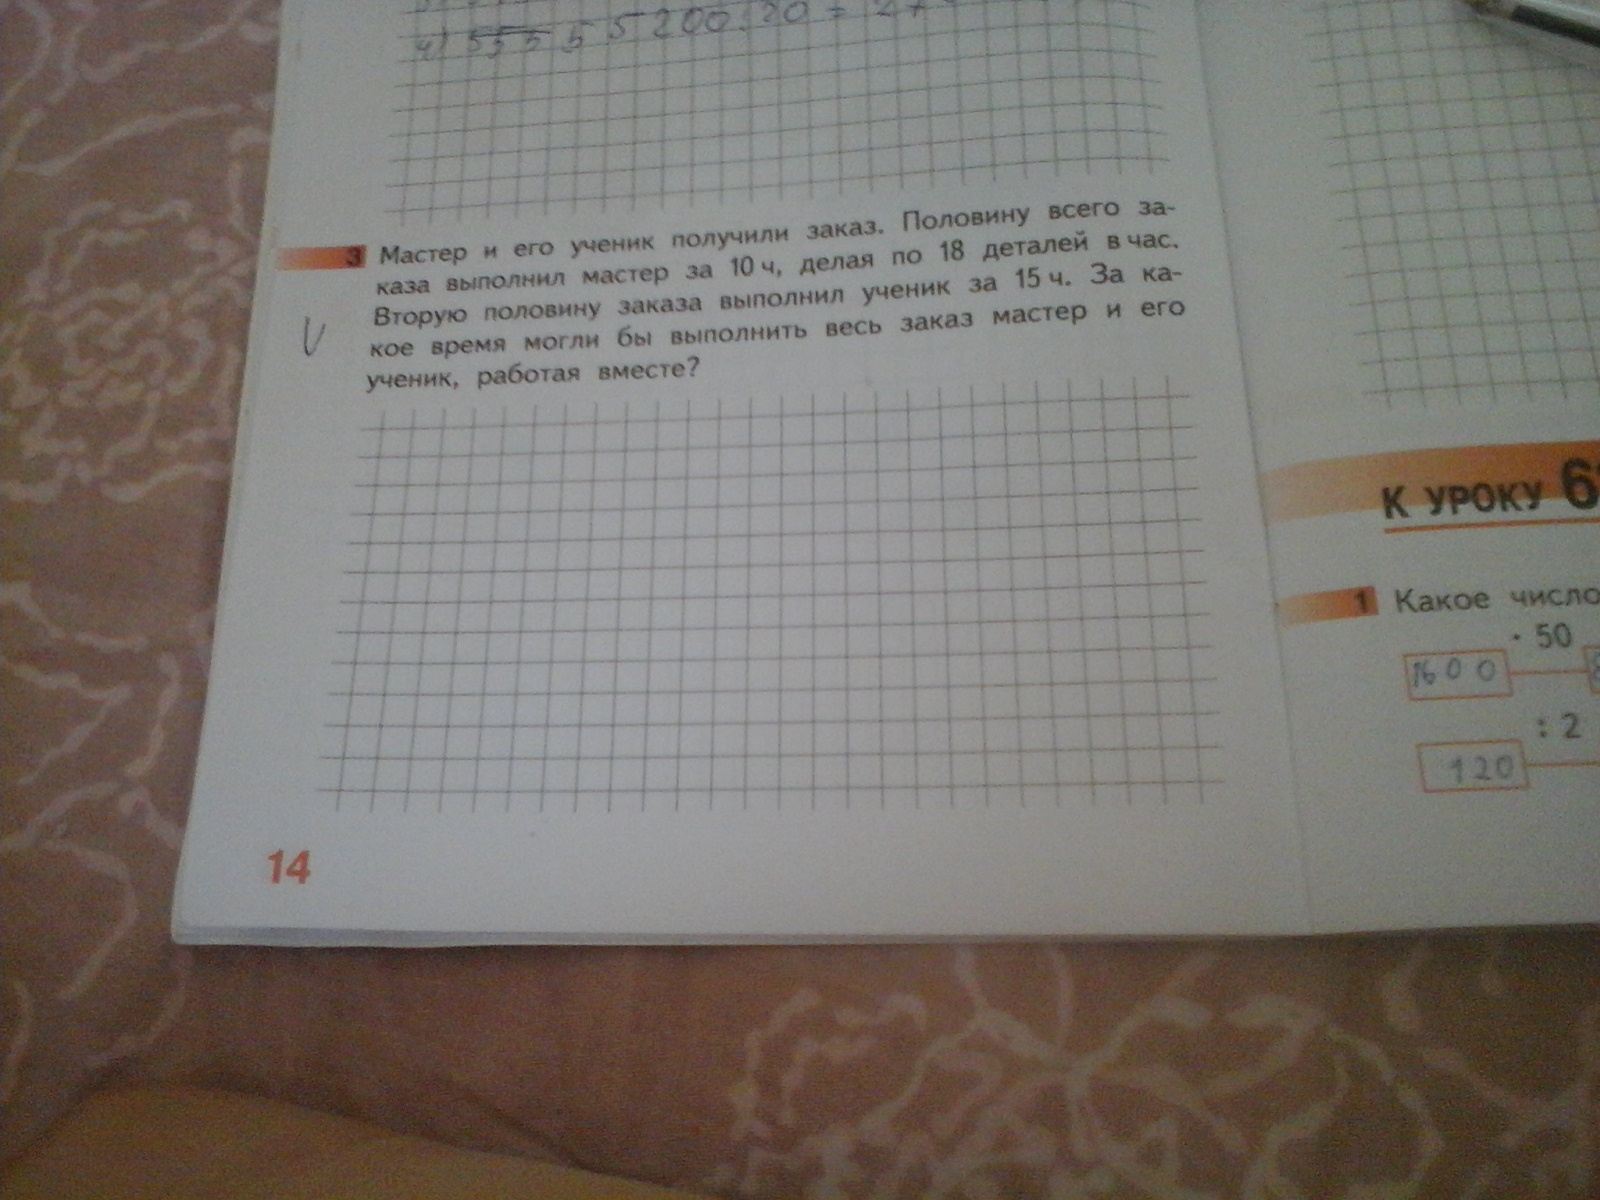 4) 555 5 5 200:20 = 27
3 Мастер и его ученик получили заказ. Половину всего за-
каза выполнил мастер за 10 ч, делая по 18 деталей в час.
Вторую половину заказа выполнил ученик за 15 ч. За ка-
кое время могли бы выполнить весь заказ мастер и его
ученик, работая вместе?
V
14
К УРОКУ 6
1 Какое число
· 50
1600
: 2
120